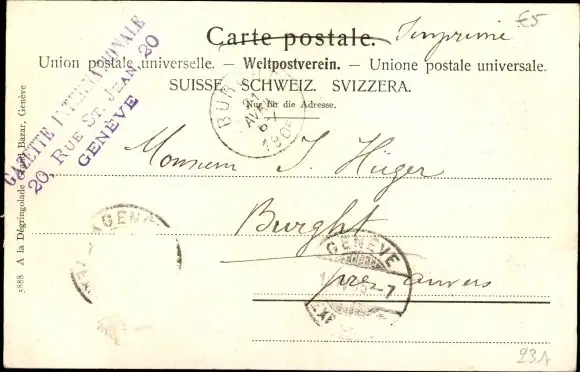 Carte postale. Imprimé
£5
Union postale universelle. – Weltpostverein. – Unione postale universale.
SUISSE. SCHWEIZ. SVIZZERA.
Nur für die Adresse.
GAZETTE INTERNATIONALE
20, RUE ST. JEAN, 20
GENÈVE
Monsieur J. Hüger
Burght
près anvers
GENÈVE
5888 A la Dégringolade Grand Bazar, Genève
23A